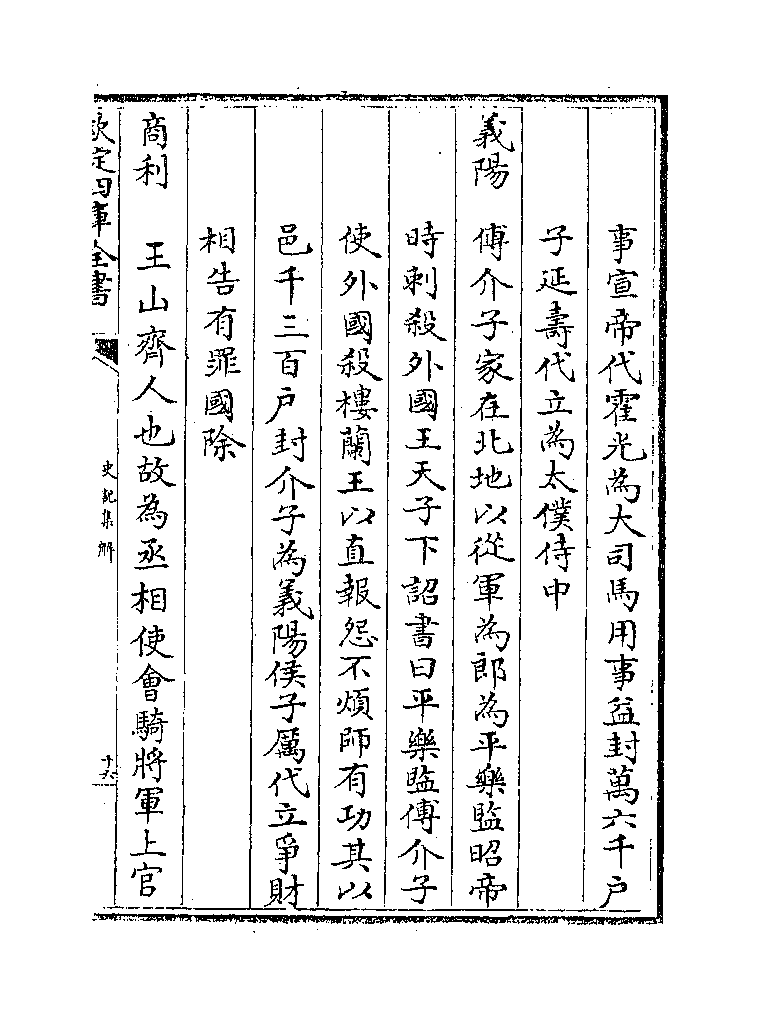 事宣帝代霍光為大司馬用事益封萬六千户
子延壽代立為太僕侍中
義陽　傅介子家在北地以從軍為郎為平樂監昭帝
時刺殺外國王天子下詔書曰平樂監傅介子
使外國殺樓蘭王以直報怨不煩師有功其以
邑千三百户封介子為義陽侯子厲代立爭財
相告有罪國除
商利　王山齊人也故為丞相使會騎將軍上官
欽定四庫全書
史記集解
十六